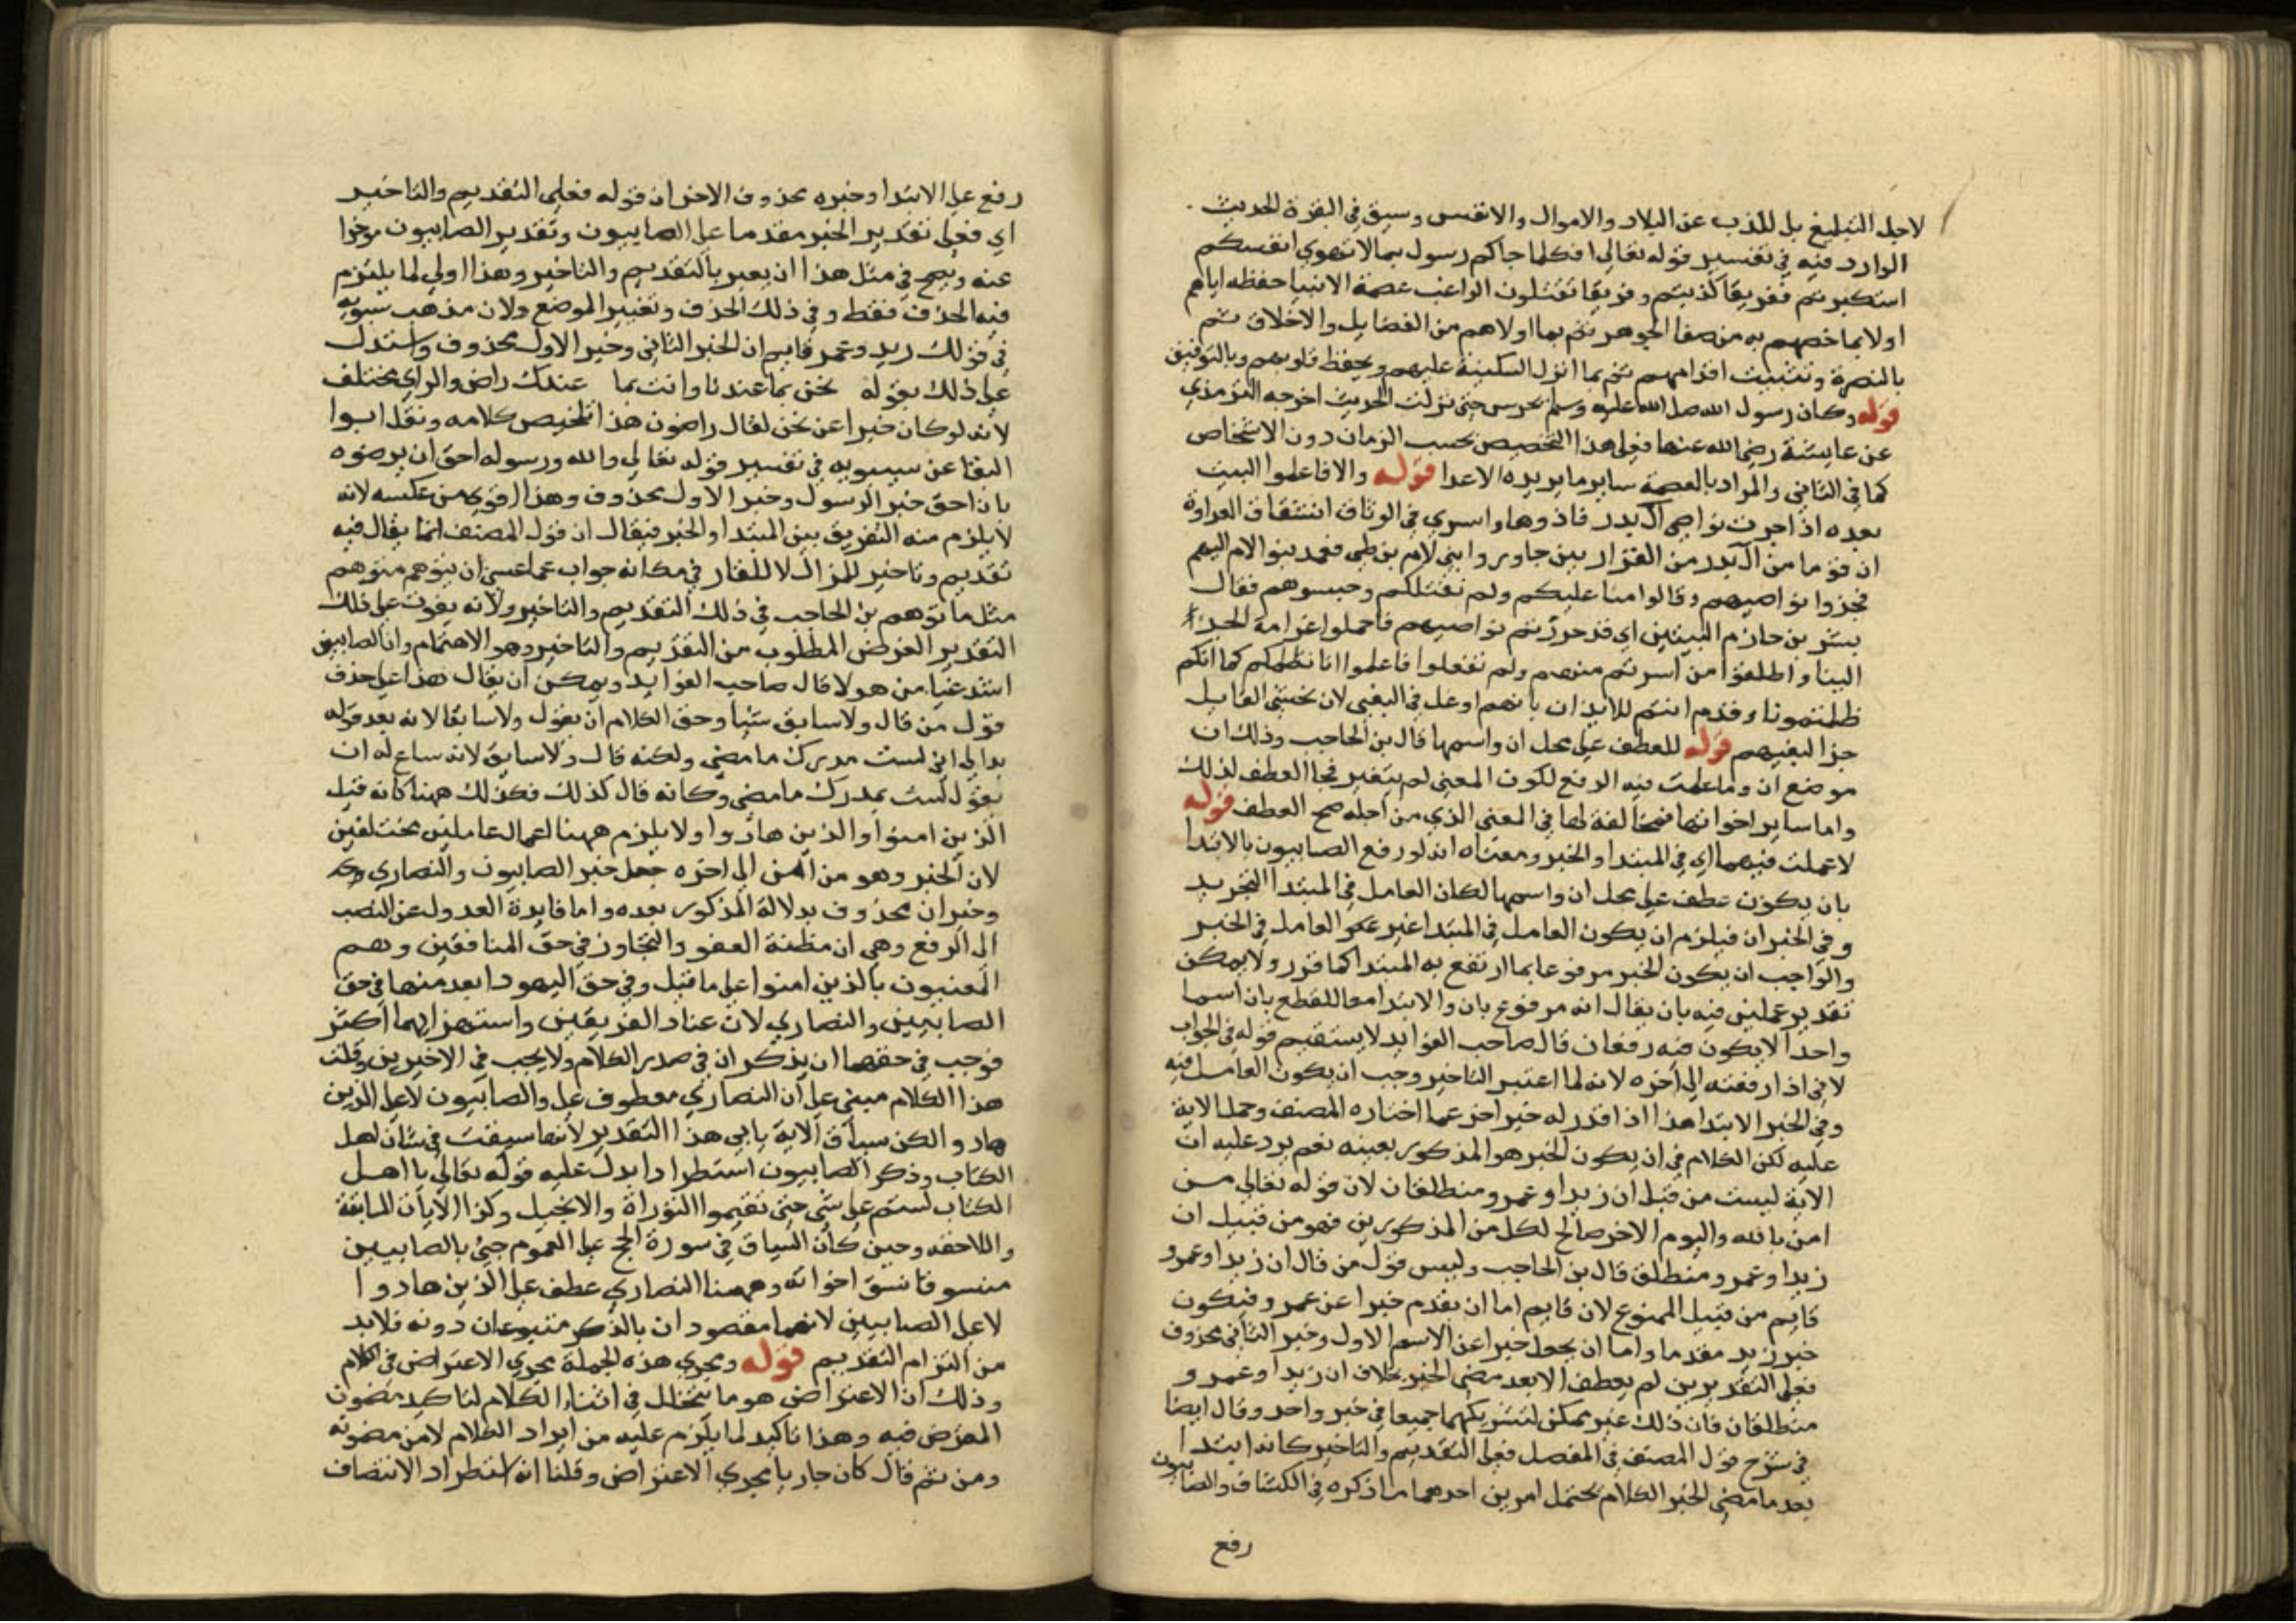 لاجل التبليغ بل للذب عن البلاد والاموال والانفس وسبق في البقرة الحديث
الوارد فيه في تفسير قوله تعالى افكلما جاكم رسول بما لا تهوي انفسكم
استكبرتم ففريقا كذبتم وفريقا تقتلون الراغب عصمة الانبيا حفظه اياهم
اولا بما خصهم به من صفا الجوهر ثم بما اولاهم من الفضايل والاخلاق ثم
بالنصرة وتثبيت اقدامهم ثم بما انزل السكينة عليهم وبحفظ قلوبهم وبالتوفيق
قوله وكان رسول الله صلى الله عليه وسلم يحرس حتى نزلت الحديث اخرجه الترمذي
عن عايشة رضي الله عنها فعلى هذا التخصيص بحسب الزمان دون الاشخاص
كما في الثاني والمراد بالعصمة ساير ما يريده الاعدا قوله والا فاعلموا البيت
بعده اذا جرت نواصي ال بدر فادوها واسري في الوثاق اشتقاق العداوة
ان قوما من ال بدر من الفزار بين جاوروا بني لام بن طي فعمد بنو الام اليهم
فجزوا نواصيهم وقالوا مننا عليكم ولم نقتلكم وحبسوهم فقال
بشر بن حازم البيتين اي قد جززتم نواصيهم فاحملوا غرامة الجز
الينا واطلقوا من اسرتم منهم ولم تفعلوا فاعلموا انا نظلمكم كما انكم
ظلمتمونا وقدم انتم للايذان بانهم اوغل في البغي لان تختشي القايل
جزا لبغيهم قوله للعطف على محل ان واسمها قال بن الحاجب وذلك ان
موضع ان وما عملت فيه الرفع لكون المعني لم يتغير فجا العطف لذلك
واما ساير اخواتها فمخالفة لها في المعني الذي من اجله صح العطف قوله
لا عملت فيهما اي في المبتدا والخبر ومعناه انه لو رفع الصابيون بالابتدا
بان يكون عطف على محل ان واسمها لكان العامل في المبتدا التجريد
وفي الخبر ان فيلزم ان يكون العامل في المبتدا غير العامل في الخبر
والواجب ان يكون الخبر مرفوعا بما ارتفع به المبتدا كما قرر ولا يمكن
تقدير عملين فيه بان يقال انه مرفوع بان والابتدا معا للقطع بان اسما
واحدا لا يكون فيه رفعان قال صاحب الفوايد لا يستقيم قوله في الجواب
لاني اذا رفعته الى اخره لانه لما اعتبر التاخير وجب ان يكون العامل فيه
وفي الخبر الابتدا هذا اذا قدر له خبر اخر عما اختاره المصنف وحمل الاية
عليه لكن الكلام في ان يكون الخبر هو المذكور بعينه نعم يرد عليه ان
الاية ليست من قبل ان زيدا وعمرو منطلقان لان قوله تعالى من
امن بالله واليوم الاخر صالح لكل من المذكورين فهو من قبيل ان
زيدا وعمرو منطلق قال بن الحاجب وليس قول من قال ان زيدا وعمرو
قايم من قبيل الممنوع لان قايم اما ان يقدم خبرا عن عمرو فيكون
خبر زيد مقدما واما ان يجعل خبرا عن الاسم الاول وخبر الثاني محذوف
فعلى التقديرين لم يعطف الا بعد مضي الخبر بخلاف ان زيدا وعمرو
منطلقان فان ذلك غير ممكن لتشريكهما جميعا في خبر واحد وقال ايضا
في شرح قول المصنف في المفصل فعلى التقديم والتاخير كانه ابتدا
بعد ما مضي الخبر الكلام يحتمل امرين احدهما ما ذكره في الكشاف والصابيون
رفع
رفع على الابتدا وخبره محذوف الاخر ان قوله فعلى التقديم والتاخير
اي فعلى تقدير الخبر مقدما على الصابيون وتقدير الصابيون موخرا
عنه ويصح في مثل هذا ان يعبر بالتقديم والتاخير وهذا اولى لما يلتزم
فيه الحذف فقط وفي ذلك الحذف وتغيير الموضع ولان مذهب سيبويه
في قولك زيد وعمرو قايم ان الخبر الثاني وخبر الاول محذوف واستدل
على ذلك بقوله نحن بما عندنا وانت بما عندك راض والراي مختلف
لانه لو كان خبرا عن نحن لقال راضون هذا تلخيص كلامه ونقل ابوا
البقا عن سيبويه في تفسير قوله تعالى والله ورسوله احق ان يرضوه
بان احق خبر الرسول وخبر الاول محذوف وهذا اقوي من عكسه لانه
لا يلزم منه التفريق بين المبتدا والخبر فيقال ان قول المصنف انما يقال فيه
تقديم وتاخير للمزال لا للقار في مكانه جواب عما عسي ان يتوهم متوهم
مثل ما توهم بن الحاجب في ذلك التقديم والتاخير ولانه يفوت على ذلك
التقدير الغرض المطلوب من التقديم والتاخير وهو الاهتمام وان الصابيين
اشد غيا من هولا قال صاحب الفوايد ويمكن ان يقال هذا على حذف
قول من قال ولا سابق شيا وحق الكلام ان يقول ولا سابقا لانه بعد قوله
بدا لي اني لست مدرك ما مضي ولكنه قال ولا سابق لانه ساع له ان
يقول لست بمدرك ما مضي وكانه قال كذلك فكذلك ههنا كانه قيل
الذين امنوا والذين هادوا ولا يلزم ههنا اعمال عاملين مختلفين
لان الخبر وهو من امن الى اخره جعل خبر الصابيون والنصاري
وخبر ان محذوف بدلالة المذكور بعده واما فايدة العدول عن النصب
الى الرفع وهي ان مظنة العفو والتجاوز في حق المنافقين وهم
المعنيون بالذين امنوا على ما قبل وفي حق اليهود ابعد منها في حق
الصابيين والنصاري لان عناد الفريقين واستهزايهما اكثر
فوجب في حقهما ان يذكر ان في صدر الكلام ولا يجب في الاخيرين وقلت
هذا الكلام مبني على ان النصاري معطوف على والصابيون لا على الذين
هادوا لكن سياق الاية يابي هذا التقدير لانها سيقت في شان اهل
الكتاب وذكر الصابيون استطرادا يدل عليه قوله تعالى يا اهل
الكتاب لستم على شي حتى تقيموا التوراة والانجيل وكذا الايات السابقة
واللاحقه وحين كان السياق في سورة الحج على العموم جي بالصابيين
منسوقا نسق اخواته وههنا النصاري عطف على الذين هادوا
لا على الصابيين لانهما مقصودان بالذكر متبوعان دونه فلا بد
من التزام التقديم قوله ويجري هذه الجملة مجري الاعتراض في الكلام
وذلك ان الاعتراض هو ما يتخلل في اثناء الكلام لتاكيد مضمون
المعترض فيه وهذا تاكيد لما يلزم عليه من ايراد الكلام لا من مضمونه
ومن ثم قال كان جاريا مجري الاعتراض وقلنا انه استطراد الانتصاف